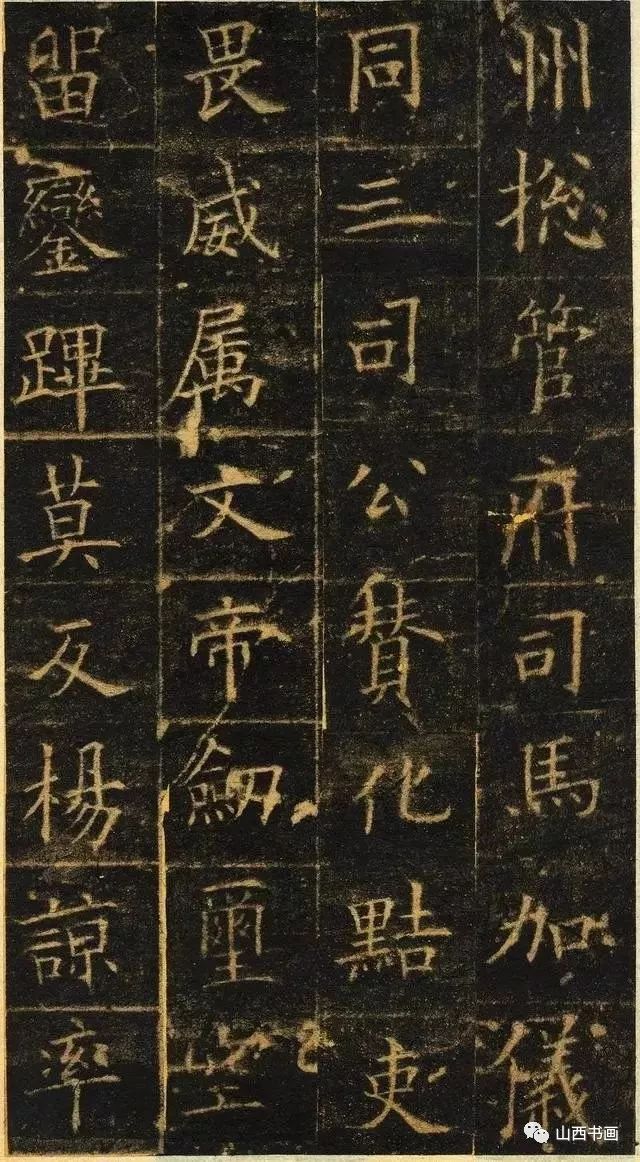 州揔管府司馬加儀
同三司公賛化黠吏
畏威属文帝劒璽空
留鑾蹕莫反楊諒率
山西书画